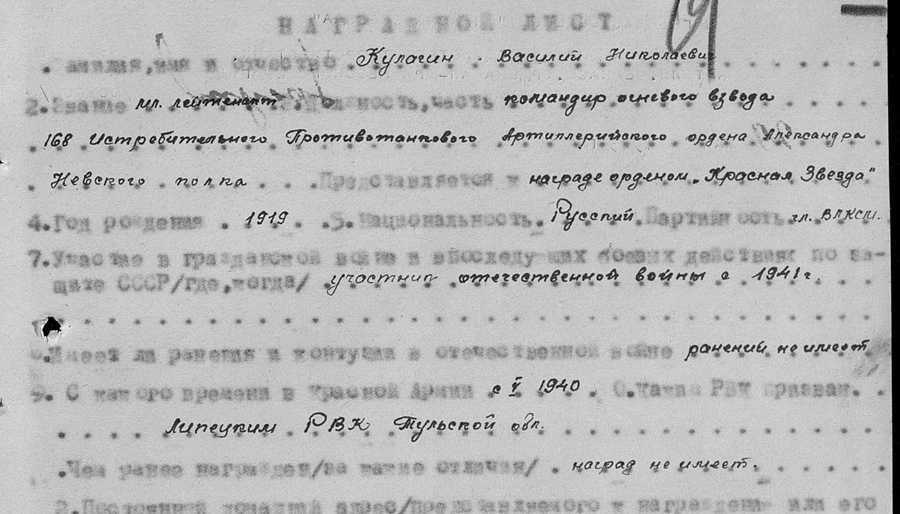 НАГРАДНОЙ ЛИСТ
. Фамилия,имя и отчество Кулагин Василий Николаевич
2.Звание мл. лейтенант Должность,часть командир огневого взвода
168 Истребительного Противотанкового Артиллерийского ордена Александра
Невского полка . . .Представляется к награде орденом „Красная Звезда"
4.Год рождения . 1919 . .5. Национальность. Русский. Партийность чл. ВЛКСМ.
7.Участие в гражданской войне и в последующих боевых действиях по за-
щите СССР/где,когда/ участник отечественной войны с 1941г.
.Имеет ли ранения и контузии в отечественной войне ранений не имеет
9. С какого времени в Красной Армии с V 1940 . 0.Каким РВК призван.
Липецким РВК Тульской обл.
.Чем ранее награжден/за какие отличия/ . наград не имеет.
2.Постоянный домашний адрес/представляемого к награждению или его